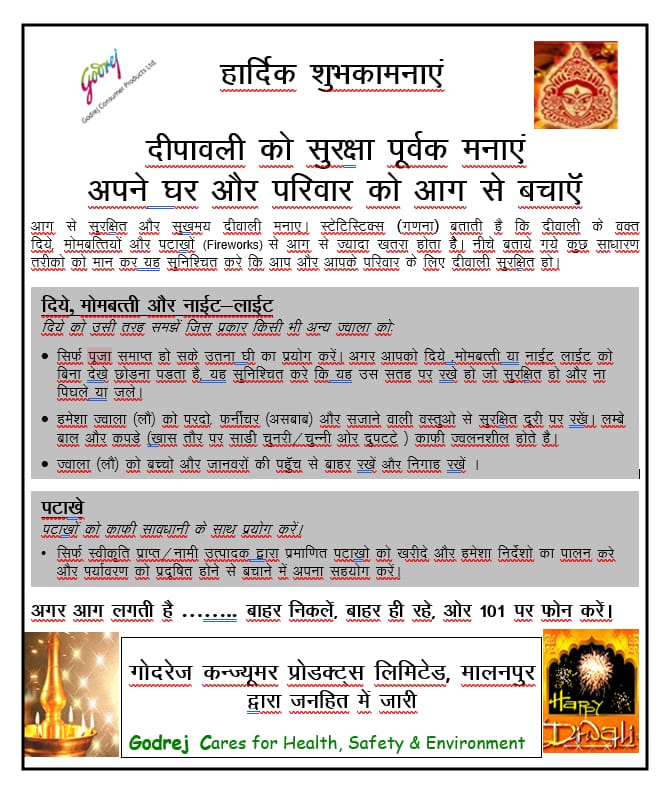 Godrej
Godrej Consumer Products Ltd.
हार्दिक शुभकामनाएं
दीपावली को सुरक्षा पूर्वक मनाएं
अपने घर और परिवार को आग से बचाऍ
आग से सुरक्षित और सुखमय दीवाली मनाए। स्टेटिस्टिक्स (गणना) बताती है कि दीवाली के वक्त
दिये, मोमबत्तियों और पटाखों (Fireworks) से आग से ज्यादा खतरा होता है। नीचे बताये गये कुछ साधारण
तरीको को मान कर यह सुनिश्चित करे कि आप और आपके परिवार के लिए दीवाली सुरक्षित हो।
दिये, मोमबत्ती और नाईट–लाईट
दिये को उसी तरह समझें जिस प्रकार किसी भी अन्य ज्वाला को:
• सिर्फ पुजा समाप्त हो सके उतना घी का प्रयोग करें। अगर आपको दिये ,मोमबत्ती या नाईट लाईट को
बिना देखे छोडना पडता है, यह सुनिश्चित करे कि यह उस सतह पर रखे हो जो सुरक्षित हो और ना
पिघले या जले।
• हमेशा ज्वाला (लौ) को परदो, फर्नीचर (असबाब) और सजाने वाली वस्तुओ से सुरक्षित दूरी पर रखें। लम्बे
बाल और कपडे (खास तौर पर साडी चुनरी/चुन्नी ओर दुपटटे ) काफी ज्वलनशील होते है।
• ज्वाला (लौ) को बच्चो और जानवरों की पहुॅच से बाहर रखें और निगाह रखें ।
पटाखे
पटाखों को काफी सावधानी के साथ प्रयोग करें।
• सिर्फ स्वीकृति प्राप्त/नामी उत्पादक द्वारा प्रमाणित पटाखो को खरीदे और हमेशा निर्देशो का पालन करे
और पर्यावरण को प्रदूषित होने से बचाने में अपना सहयोग करें।
अगर आग लगती है …….. बाहर निकलें, बाहर ही रहे, ओर 101 पर फोन करें।
गोदरेज कन्ज्यूमर प्रोडक्ट्स लिमिटेड, मालनपुर
द्वारा जनहित में जारी
Godrej Cares for Health, Safety & Environment
Happy
Diwali